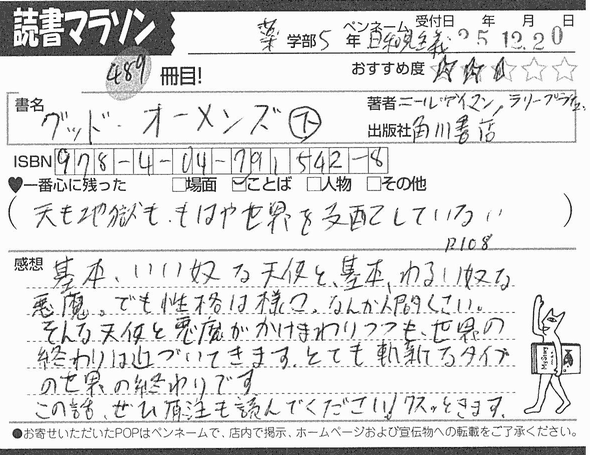 読書マラソン
薬 学部 5 年 ペンネーム 受付日 年 月 日
25 12.20
489 冊目!
おすすめ度 ★★★☆☆☆
書名 グッド・オーメンズ 下
著者 ニール・ゲイマン, テリー・プラチェット
出版社 角川書店
ISBN 978-4-04-791542-8
♥一番心に残った □場面 ☑ことば □人物 □その他
(天も地獄も、もはや世界を支配していない)
P.108
感想 基本、いい奴な天使と、基本、わるい奴な
悪魔。でも性格は様々。なんか人間くさい。
そんな天使と悪魔がかけまわりつつも、世界の
終わりは近づいてきます。とても斬新なタイプ
の世界の終わりです
この話、ぜひ脚注も読んでください!クスッときます。
●お寄せいただいたPOPはペンネームで、店内で掲示、ホームページおよび宣伝物への転載をご了承ください。